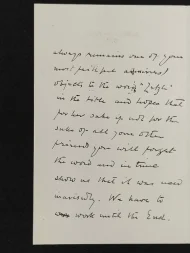 always remains one of your
most faithful admirers!
objects to the word "Light"
in the title and hopes that
for her sake if not for the
sake of all your other
friends you will forget
the word and in time
show us that it was used
We have to
work until the End.